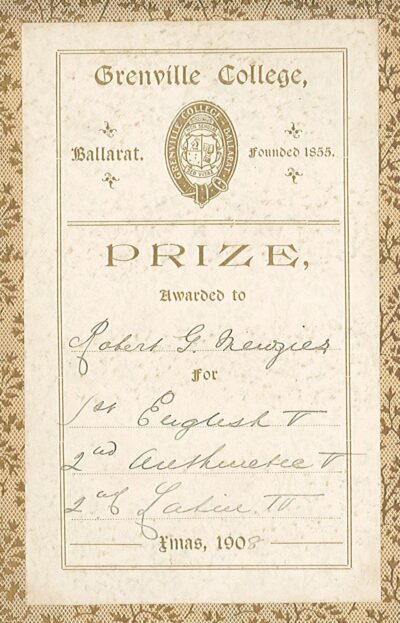 Grenville College,
Ballarat.
GRENVILLE COLLEGE, BALLARAT
Founded 1855.
PRIZE,
Awarded to
Robert G. Menzies
For
1st English V
2nd Arithmetic V
2nd Latin IV
Xmas, 1908